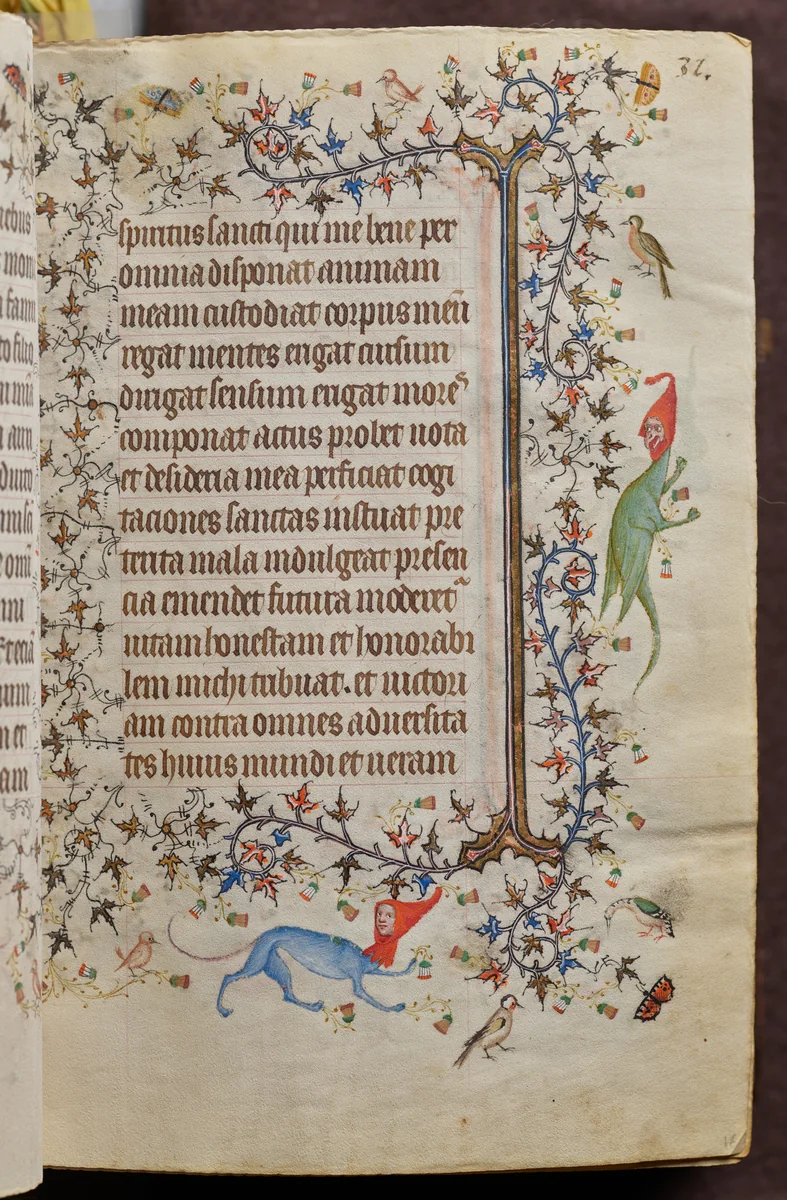 32.
spiritus sancti qui me bene per
omnia disponat animam
meam custodiat corpus meū
regat mentes erigat cursum
dirigat sensum erigat more᷒
componat actus probet uota
et desideria mea perficiat cogi
taciones sanctas instuat pre
terita mala indulgeat presen
cia emendet futura moderet᷑
uitam honestam et honorabi
lem michi tribuat. et uictori
am contra omnes aduersita
tes huius mundi et ueram